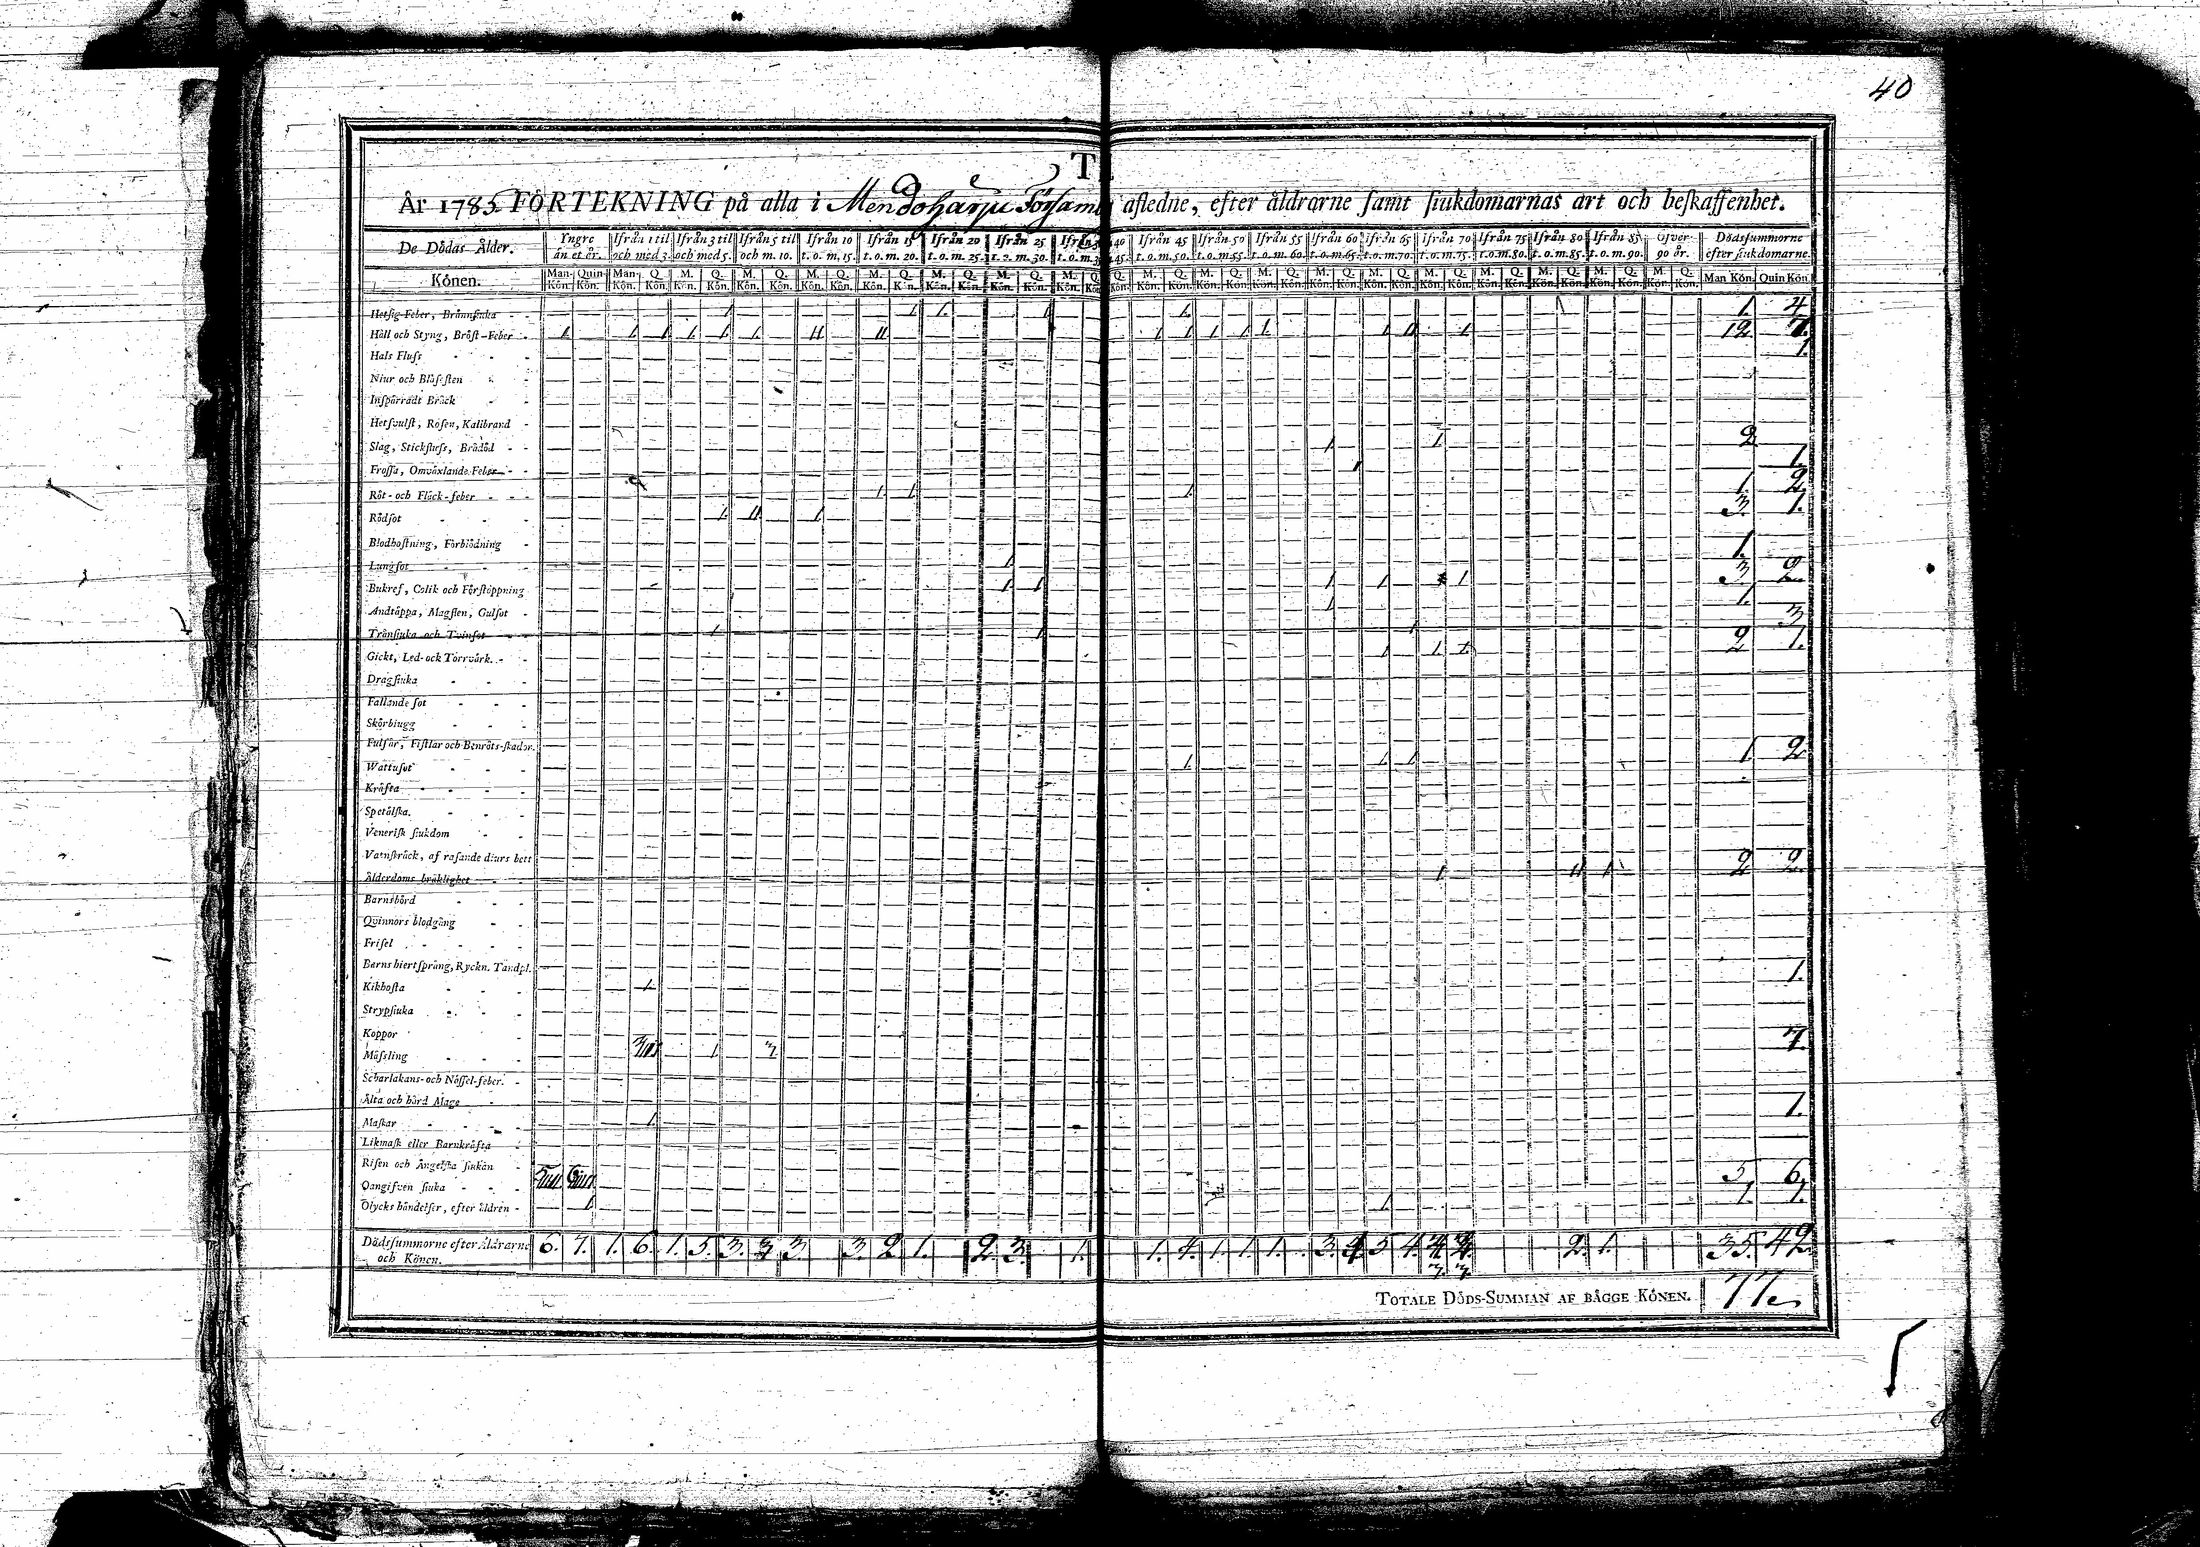 40
T
År 1785 FÖRTEKNING på alla i Mendoharju Församl afledne, efter åldrarne samt siukdomarnas art och beskaffenhet.
De Dödas Ålder. Yngre än et år. Ifrån 1 til och med 3. Ifrån 3 til och med 5. Ifrån 5 til och m. 10. Ifrån 10 t. o. m. 15. Ifrån 15 t. o. m. 20. Ifrån 20 t. o. m. 25. Ifrån 25 t. o. m. 30. Ifrån 40 45. Ifrån 45 t. o. m. 50. Ifrån 50 t. o. m. 55. Ifrån 55 t. o. m. 60. Ifrån 60 t. o. m. 65. Ifrån 65 t. o. m. 70. Ifrån 70 t. o. m. 75. Ifrån 75 t. o. m. 80. Ifrån 80 t. o. m. 85. Ifrån 85 t. o. m. 90. Öfver 90 år. Dödssummorne efter siukdomarne.
Könen. Man Kön. Quin Kön. Man Kön. Q. Kön. M. Kön. Q. Kön. M. Kön. Q. Kön. M. Kön. Q. Kön. M. Kön. Q. Kön. M. Kön. Q. Kön. M. Kön. Q. Kön. M. Kön. Q. Kön. Q. Kön. M. Kön. Q. Kön. M. Kön. Q. Kön. M. Kön. Q. Kön. M. Kön. Q. Kön. M. Kön. Q. Kön. M. Kön. Q. Kön. M. Kön. Q. Kön. M. Kön. Q. Kön. M. Kön. Q. Kön. M. Kön. Q. Kön. Man Kön. Quin Kön.
Hetsig-Feber, Brännsiuka 1 1 1. 1 1. 1. 4
Håll och Styng, Bröst-Feber 1. 1 1 1. 1 1. 11 11 1 1 1 1 1. 1 11 1 12 7.
Hals Fluss 1.
Niur och Blåsesten
Inspärradt Bråck
Hetsvulst, Rosen, Kallbrand
Slag, Stickfluss, Brådöd 1 1. 2
Frossa, Omväxlande Feber 1 1.
Röt- och Fläck-feber 1. 1. 1. 1. 2
Rödsot 1. 11. 1. 3. 1.
Blodhostning, Förblödning
Lungsot 1 1.
Bukref, Colik och Förstoppning 1. 1 1 1 1 3 2
Andtäppa, Magsten, Gulsot 1 1.
Trånsiuka och Tvinsot 1 1 1 3
Gickt, Led- och Torrvärk. 1 1. 1. 2 1.
Dragsiuka
Fallande sot
Skörbiugg
Fulsår, Fistlar och Benröts-skador.
Wattusot 1. 1. 1. 1 2
Kräfta
Spetälska.
Venerisk siukdom
Vatnskräck, af rasande diurs bett
Ålderdoms bräklighet 1 11 1 2 2.
Barnsbörd
Qvinnors blodgång
Frisel
Barns hiertsprång, Ryckn. Tandpl.
Kikhosta 1. 1.
Strypsiuka
Koppor
Mässling 1. 7.
Scharlakans- och Nässel-feber.
Älta och hård Mage
Maskar 1. 1.
Likmask eller Barnkräfta
Risen och Ängelska siukan
Oangifven siuka 5 6
Olyckshändelser, efter åldren 1. 1 1. 1.
Dödssummorne efter Åldrarne och Könen. 6. 7. 1. 6. 1. 5. 3. 3. 3. 2 1. 2. 3. 1. 1. 4. 1. 1. 1. 3. 5 4. 2. 1. 35. 42
TOTALE DÖDS-SUMMAN AF BÄGGE KÖNEN. 77